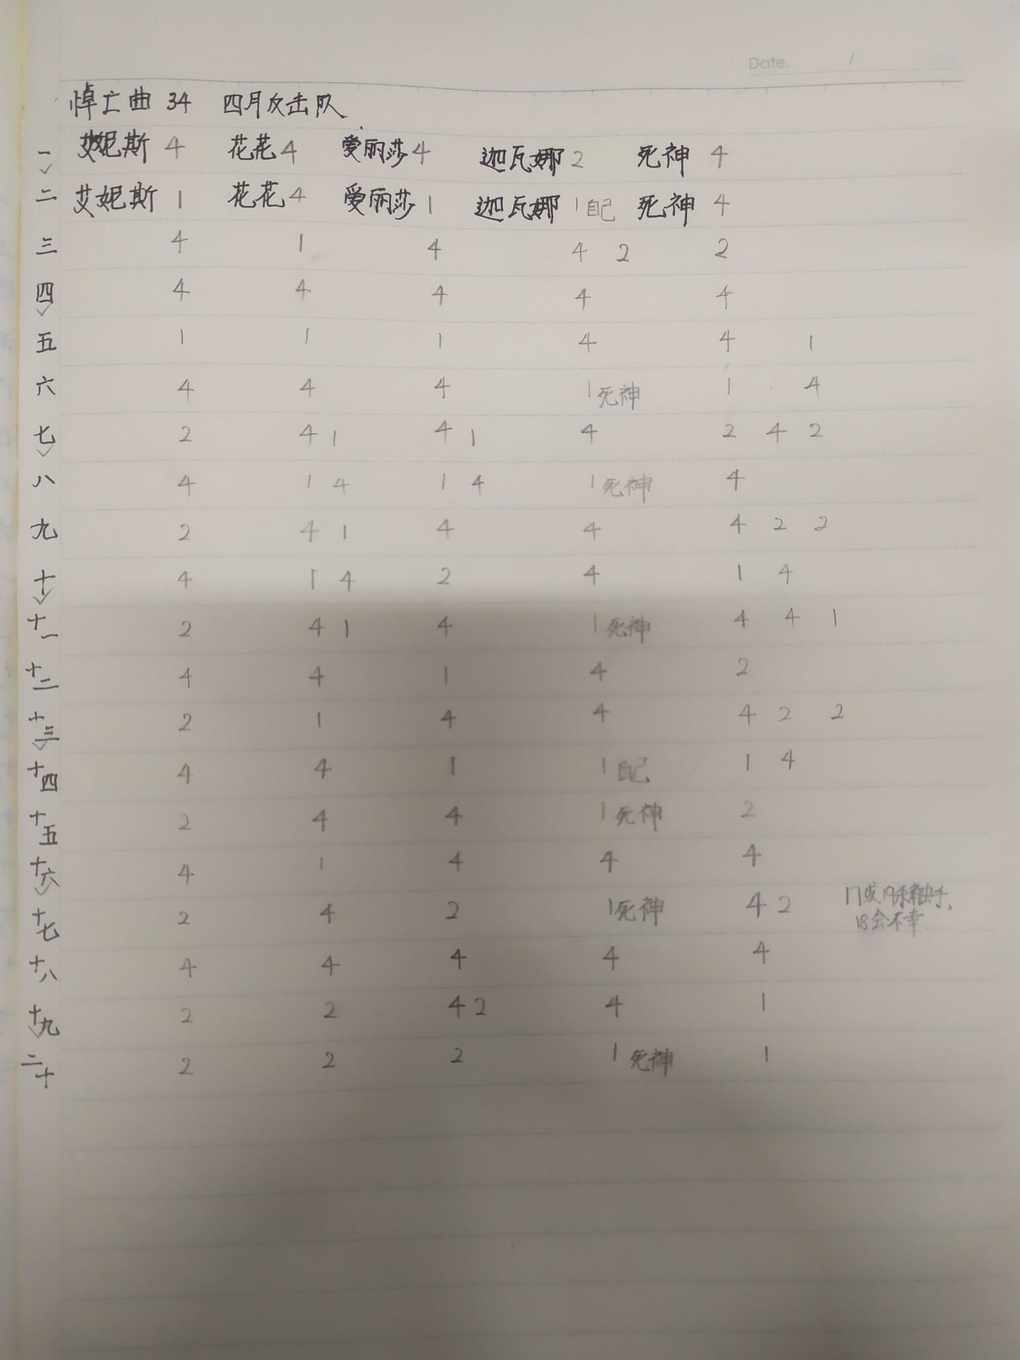 Date. /
悼亡曲 34 四月反击队
一 艾妮斯 4 花花 4 爱丽莎 4 迦瓦娜 2 死神 4
二 艾妮斯 1 花花 4 爱丽莎 1 迦瓦娜 1自己 死神 4
三 4 1 4 4 2 2
四 4 4 4 4 4
五 1 1 1 4 4 1
六 4 4 4 1死神 1 4
七 2 4 1 4 1 4 2 4 2
八 4 1 4 1 4 1死神 4
九 2 4 1 4 4 4 2 2
十 4 1 4 2 4 1 4
十一 2 4 1 4 1死神 4 4 1
十二 4 4 1 4 2
十三 2 1 4 4 4 2 2
十四 4 4 1 1自己 1 4
十五 2 4 4 1死神 2
十六 4 1 4 4 4
十七 2 4 2 1死神 4 2
18会不幸
十八 4 4 4 4 4
十九 2 2 4 2 4 1
二十 2 2 2 1死神 1